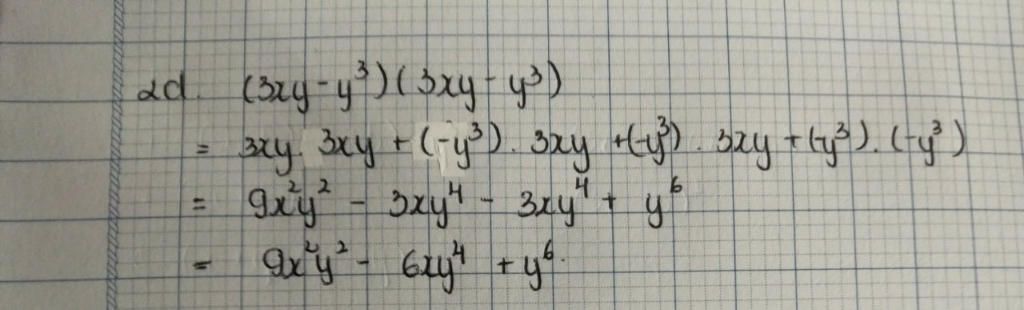 2d. (3xy - y³)(3xy - y³)
= 3xy 3xy + (-y³). 3xy +(-y³). 3xy + (-y³). (-y³)
= 9x²y² - 3xy⁴ - 3xy⁴ + y⁶
= 9x²y² - 6xy⁴ + y⁶.